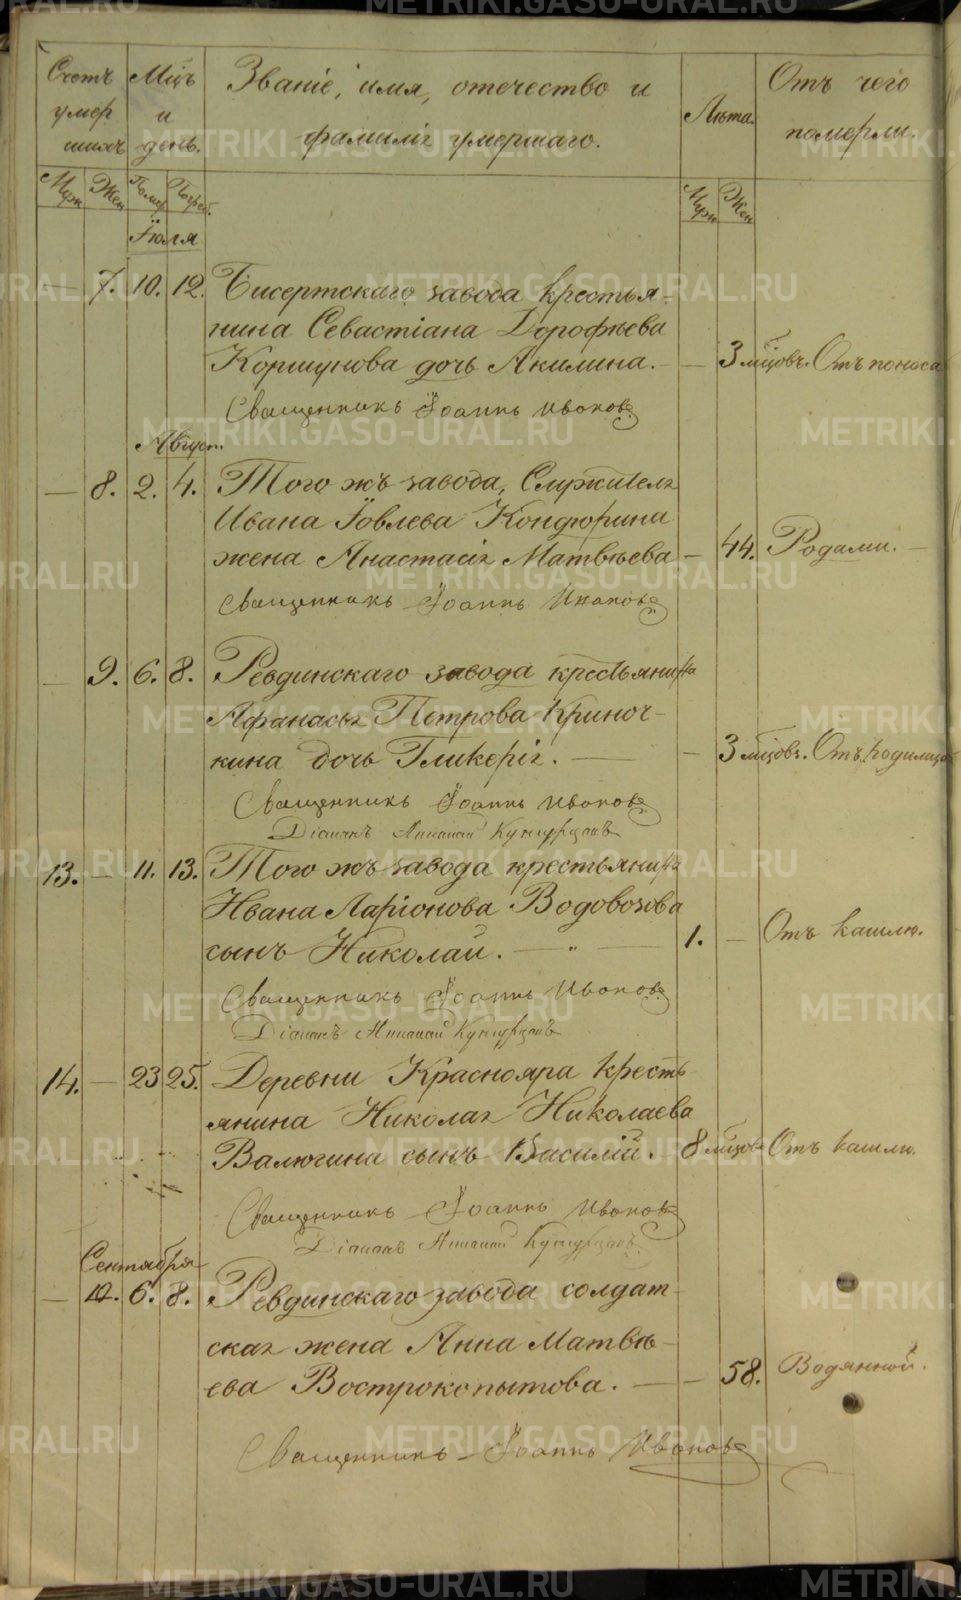 METRIKI.GASO-URAL.RU
Счетъ умершихъ Мцъ и день. Званіе, имя, отчество и фамилія умершаго. Лѣта. Отъ чего померли.
Муж Жен Помер Погреб. Муж Жен
Іюля
— 7. 10. 12. Бисертскаго завода крестья-
нина Севастіана Дорофѣева
Коршунова дочь Акилина. — 3 мцовъ. Отъ поноса
Священникъ Іоаннъ Ивановъ
Август.
— 8. 2. 4. Того жъ завода, Служителя
Ивана Іовлева Кондюрина
жена Анастасія Матвѣева — 44. Родами. —
Священникъ Іоаннъ Ивановъ
— 9. 6. 8. Ревдинскаго завода крестьянина
Афанасья Петрова Криноч-
кина дочь Гликерія. — — 3 мцовъ. Отъ родимца
Священникъ Іоаннъ Ивановъ
Діаконъ
13. — 11. 13. Того жъ завода крестьянина
Ивана Ларіонова Водовозова
сынъ Николай. — „ — 1. — Отъ кашлю.
Священникъ Іоаннъ Ивановъ
Діаконъ
14. — 23 25. Деревни Краснояра кресть-
янина Николая Николаева
Валюгина сынъ Василій. — 8 мцовъ Отъ кашлю.
Священникъ Іоаннъ Ивановъ
Діаконъ
Сентября
— 10. 6. 8. Ревдинскаго завода солдат-
ская жена Анна Матвѣ-
ева Вострокопытова. — — 58. Водянной.
Священникъ Іоаннъ Ивановъ